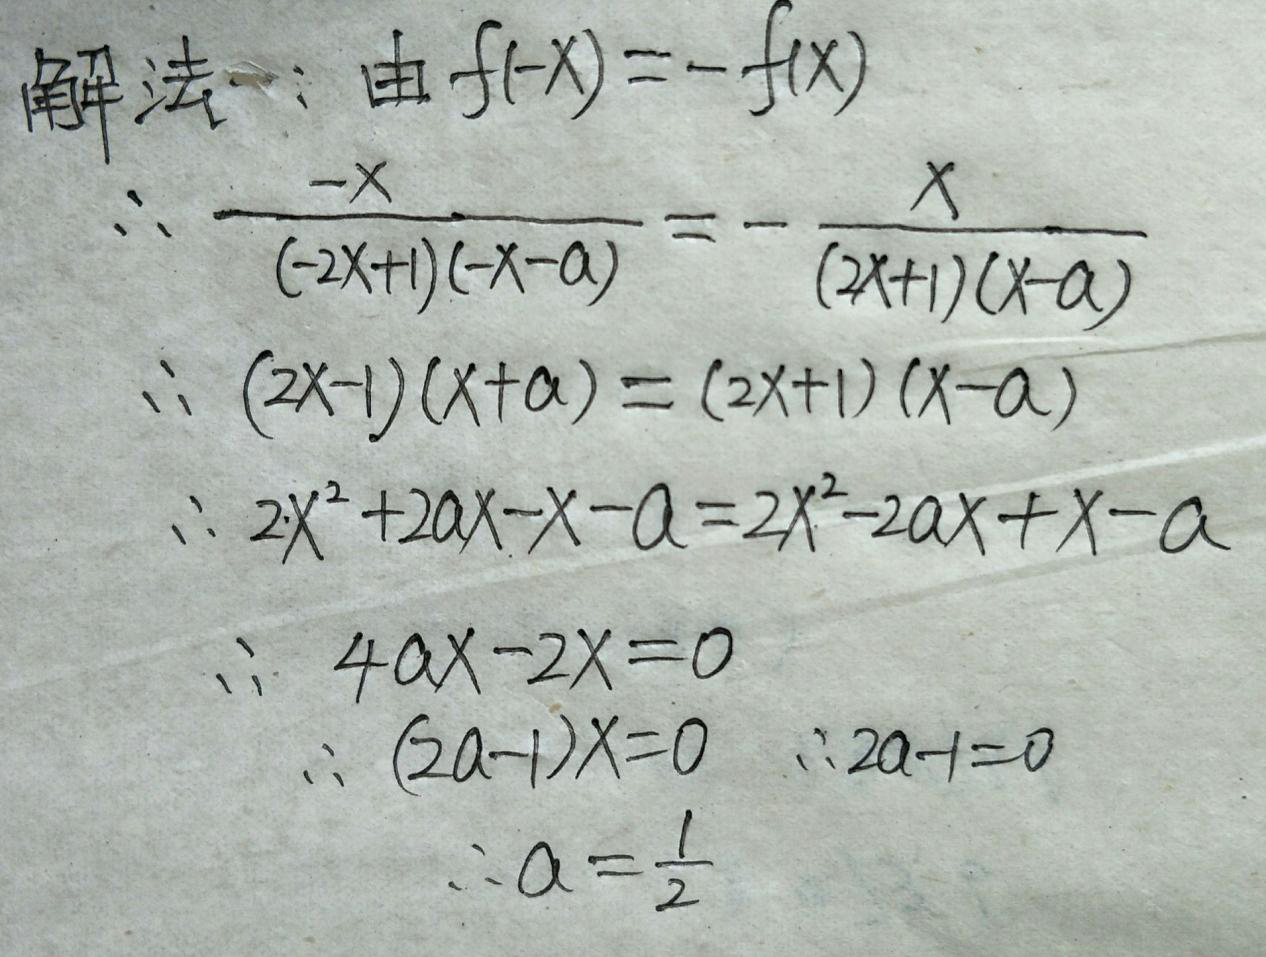 解法一: 由 f(-x)=-f(x)
∴ -x/((-2x+1)(-x-a)) = - x/((2x+1)(x-a))
∴ (2x-1)(x+a)=(2x+1)(x-a)
∴ 2x²+2ax-x-a=2x²-2ax+x-a
∴ 4ax-2x=0
∴ (2a-1)x=0 ∴2a-1=0
∴a=1/2